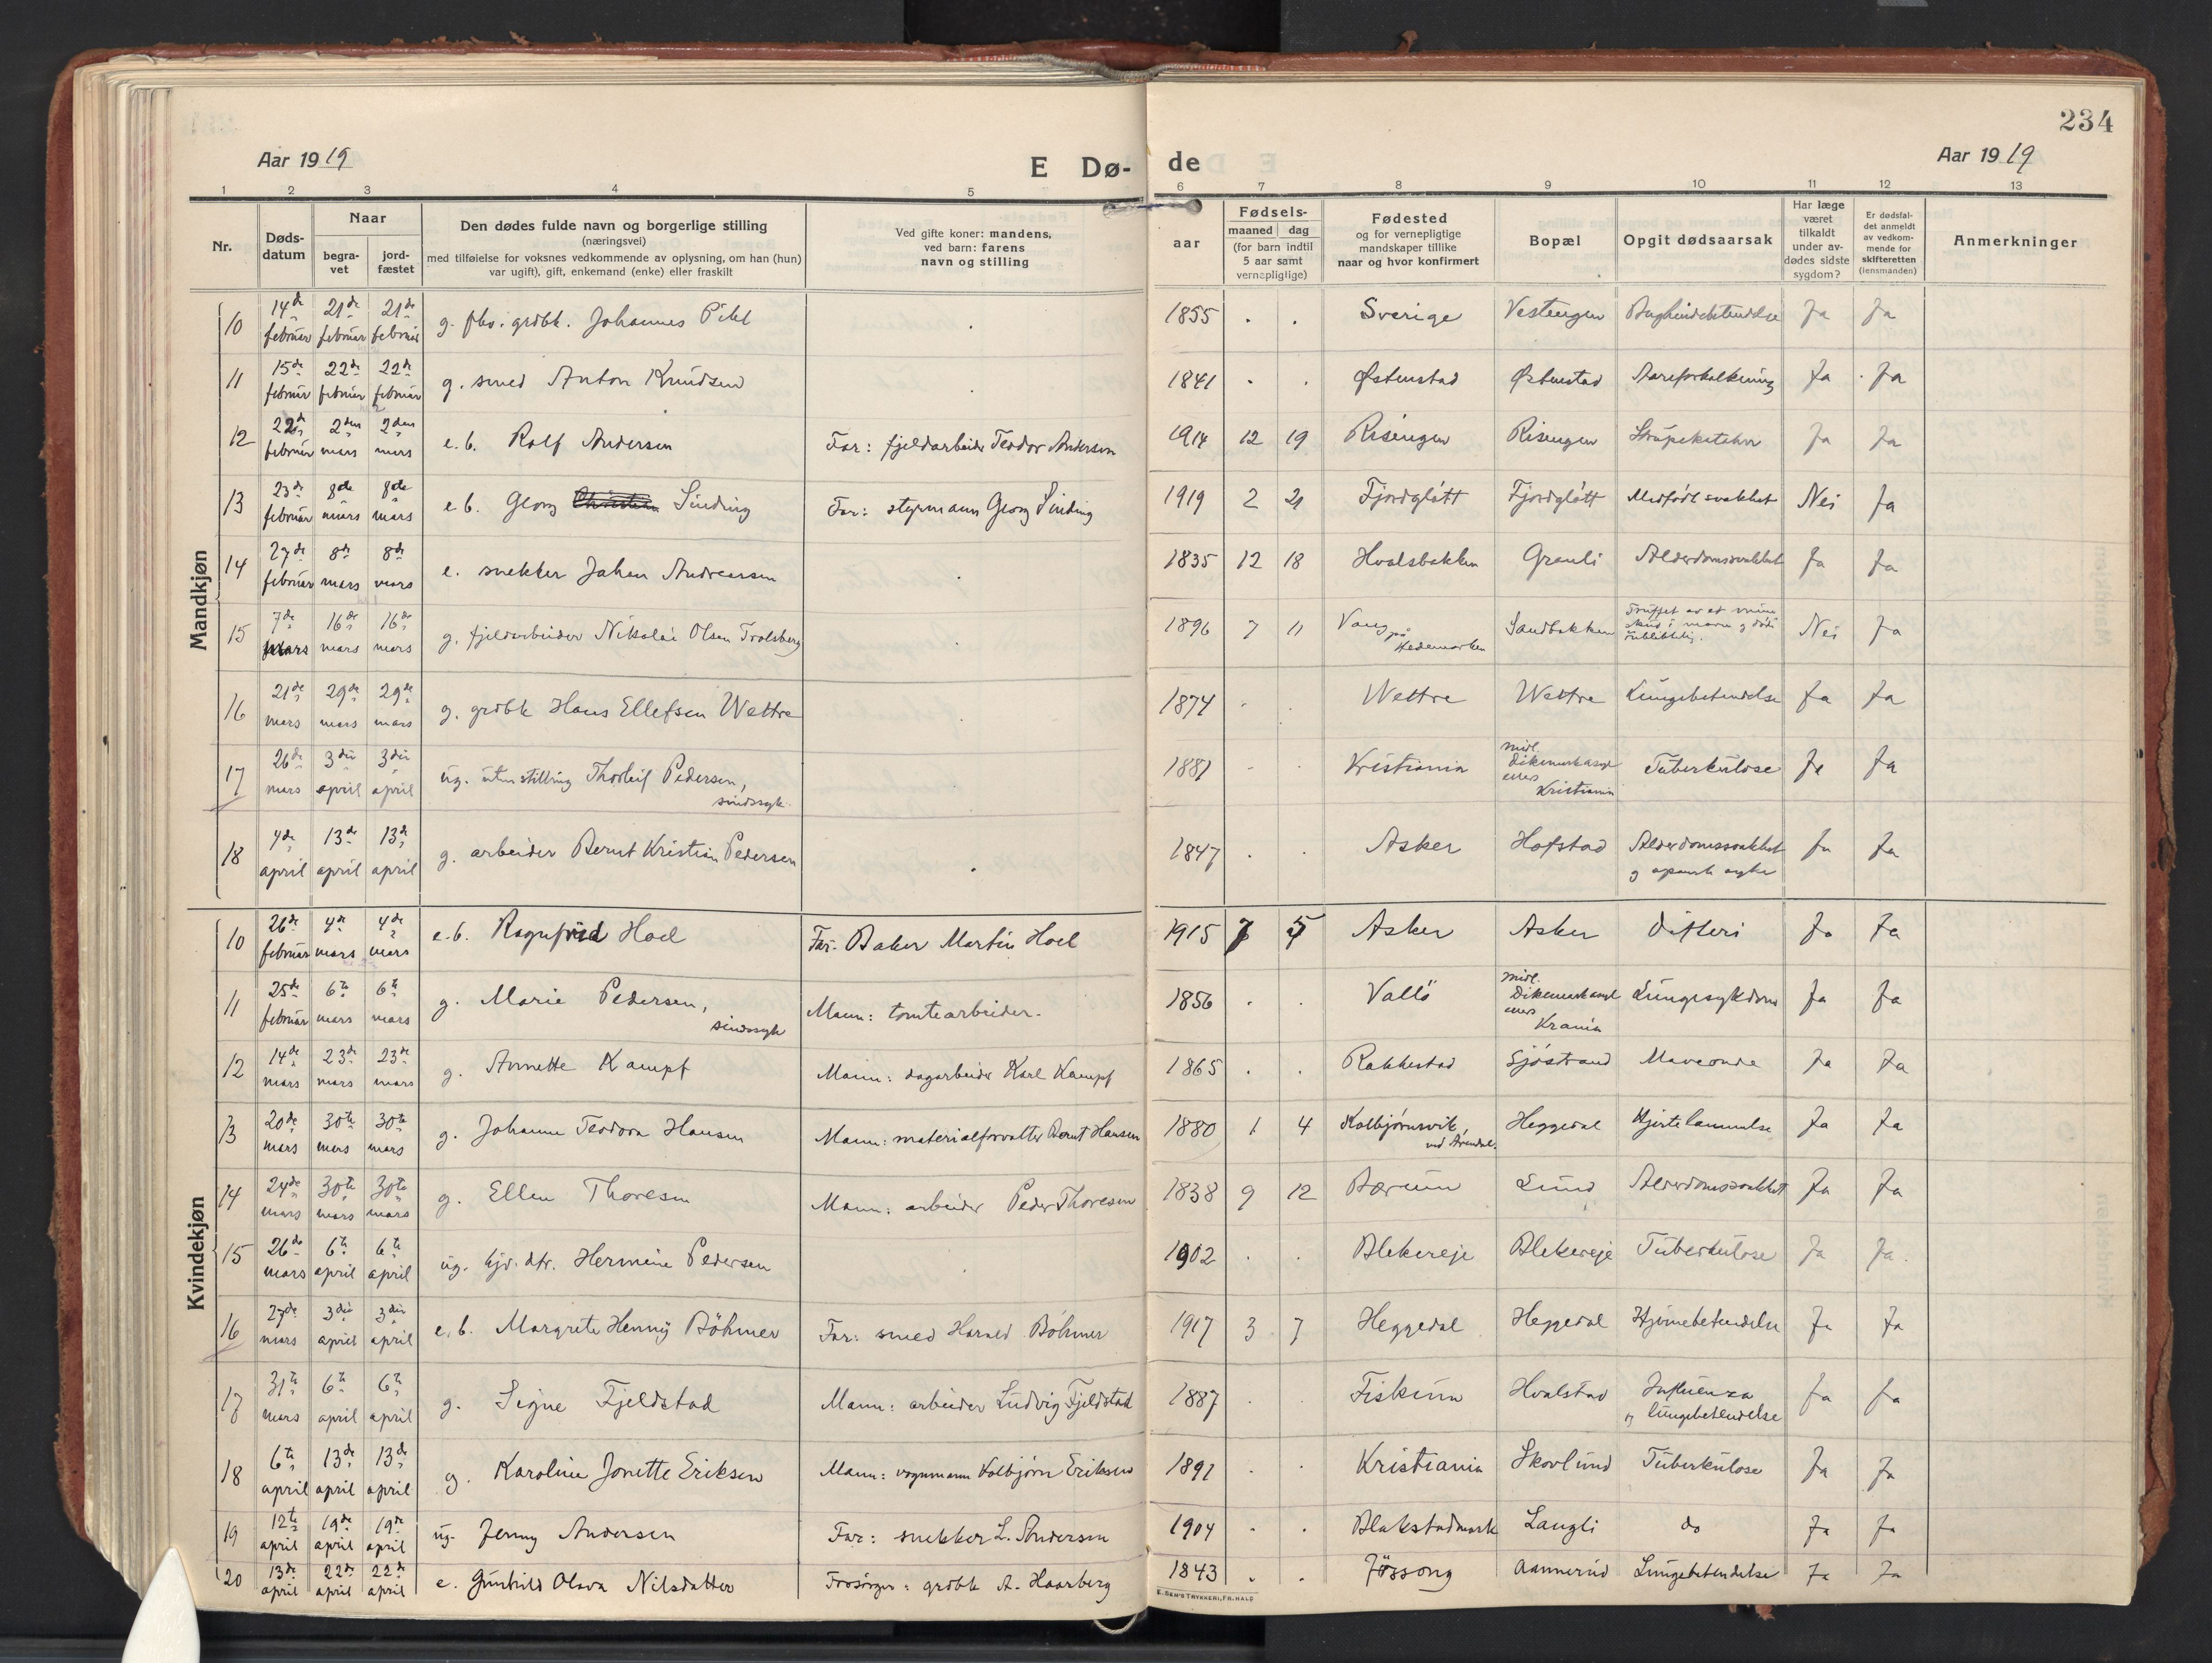 234
Aar 1919
E Dø-
de
Aar 1919
1 2 3 4 5 6 7 8 9 10 11 12 13
Nr.
Døds-
datum
Naar
begra-
vet
jord-
fæstet
Den dødes fulde navn og borgerlige stilling
(næringsvei)
med tilføielse for voksnes vedkommende av oplysning, om han (hun)
var ugift), gift, enkemand (enke) eller fraskilt
Ved gifte koner: mandens,
ved barn: farens
navn og stilling
Fødsels-
aar
maaned dag
(for barn indtil
5 aar samt
vernepligtige)
Fødested
og for vernepligtige
mandskaper tillike
naar og hvor konfirmert
Bopæl
Opgit dødsaarsak
Har læge
været
tilkaldt
under av-
dødes sidste
sygdom?
Er dødsfal-
det anmeldt
av vedkom-
mende for
skifteretten
(lensmanden)
Anmerkninger
Mandkjøn
10 14de februar 21de februar 21de februar g. fhv. grdbk. Johannes Pihl 1855 Sverige Vestengen Ja Ja
11 15de februar 22de februar 22de februar g. smed Anton Knudsen 1841 Østenstad Østenstad Aareforkalkning Ja Ja
12 22de februar 2den mars 2den mars e.b. Rolf Andersen Far: fjeldarbeider Teodor Andersen 1914 12 19 Risengen Risengen Strupekatahr Ja Ja
13 23de februar 8de mars 8de mars e.b. Georg Christian Sinding Far: styrmann Georg Sinding 1919 2 21 Fjordgløtt Fjordgløtt Medfødt svakhet Nei Ja
14 27de februar 8de mars 8de mars e. snekker Johan Andreassen 1835 12 18 Hvalsbakken Grønli Alderdomssvakhet Ja Ja
15 7de mars 16de mars 16de mars g. fjeldarbeider Nikolai Olsen Trolsberg 1896 7 11 Vang på Hedemarken Sandbakken Truffet av et mine
skud i maven og døde
øieblikkelig. Nei Ja
16 21de mars 29de mars 29de mars g. grdbk Hans Ellefsen Wettre 1874 Wettre Wettre Lungebetendelse Ja Ja
17 26de mars 3die april 3die april ug. uten stilling Thorleif Pedersen,
sindssyk. 1881 Kristiania midl.
Dikemarkasyl
ellers
Kristiania Tuberkulose Ja Ja
18 4de april 13de april 13de april g. arbeider Bernt Kristian Pedersen 1847 Asker Hofstad Alderdomssvakhet
og spansk syke Ja Ja
Kvindekjøn
10 26de februar 4de mars 4de mars e.b. Ragnfrid Hoel Far: Baker Martin Hoel 1915 7 5 Asker Asker Difteri Ja Ja
11 25de februar 6te mars 6te mars g. Marie Pedersen,
sindssyk Mann: tomtearbeider. 1856 Vallö midl.
Dikemarkasyl
ellers
Krania Lungesykdom Ja Ja
12 14de mars 23de mars 23de mars g. Annette Kampf Mann: dagarbeider Karl Kampf 1865 Rakkestad Sjöstrand Maveonde Ja Ja
13 20de mars 30te mars 30te mars g. Johanne Teodora Hansen Mann: materialforvalter Bernt Hansen 1880 1 4 Kolbjørnsvik,
ved Arendal. Heggedal Hjertelammelse Ja Ja
14 24de mars 30te mars 30te mars g. Ellen Thoresen Mann: arbeider Peder Thoresen 1838 9 12 Bærum Lund Alderdomssvakhet Ja Ja
15 26de mars 6te april 6te april ug. gjv. dtr. Hermine Pedersen 1902 Blekereje Blekereje Tuberkulose Ja Ja.
16 27de mars 3die april 3die april e.b. Margrete Henny Böhmer Far: smed Harald Böhmer 1917 3 7 Heggedal Heggedal Hjernebetendelse Ja Ja
17 31te mars 6te april 6te april g. Signe Fjeldstad Mann: arbeider Ludvig Fjeldstad 1887 Fiskum Hvalstad Influenza
og lungebetendelse Ja Ja
18 6te april 13de april 13de april g. Karoline Jonette Eriksen Mann: vognmann Kolbjørn Eriksen 1891 Kristiania Skovlund Tuberkulose Ja Ja
19 12te april 19de april 19de april ug. Jenny Andersen Far: snekker L. Andersen 1904 Blakstadmark Langli do Ja Ja
20 13de april 22de april 22de april e. Gunhild Olava Nilsdatter Forsørger: grdbk A. Haarberg 1843 Jössong Aannerud Lungebetendelse Ja Ja
E. SEM'S TRYKKERI, FR.HALD